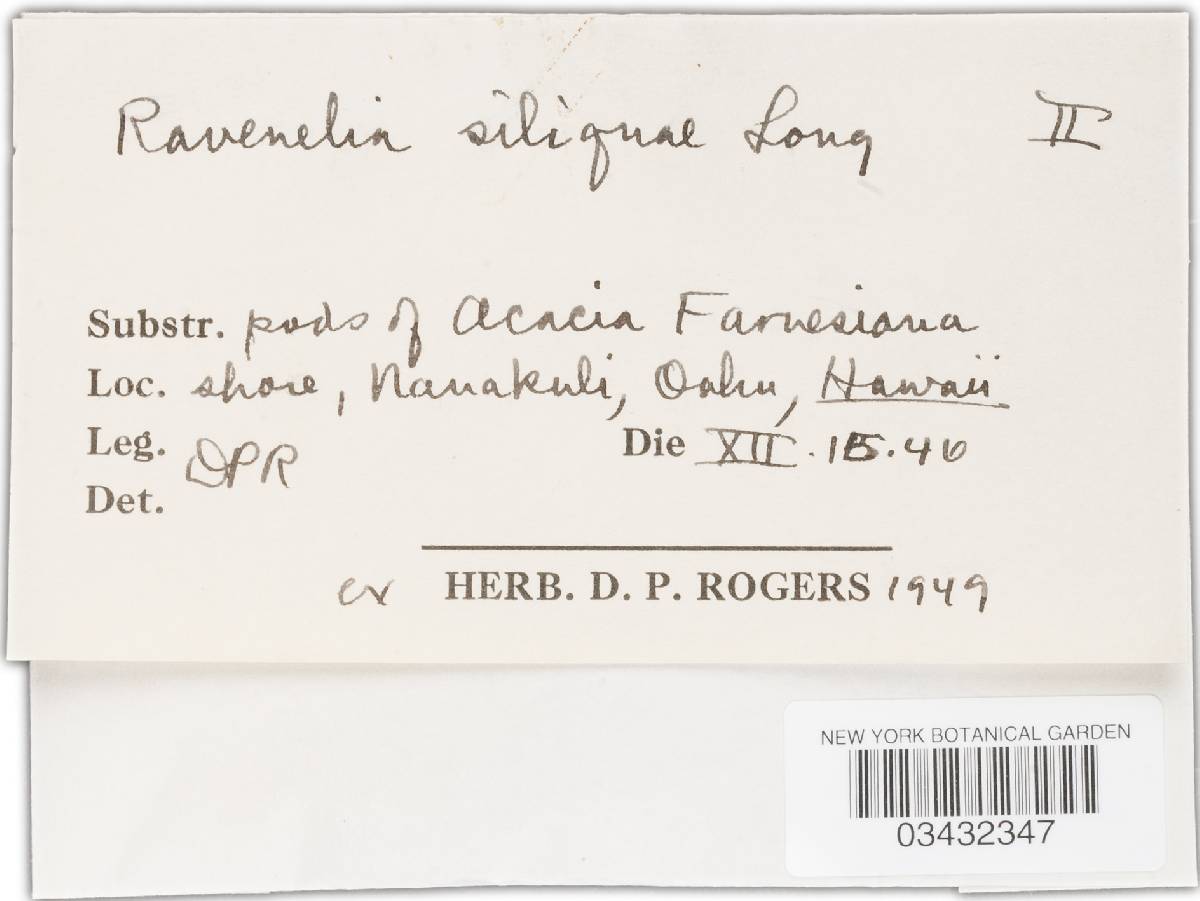 Ravenelia siliquae Long II
Substr. pods of Acacia Farnesiana
Loc. shore, Nanakuli, Oahu, Hawaii
Leg. DPR Die XII.15.46
Det.
ex HERB. D. P. ROGERS 1949
NEW YORK BOTANICAL GARDEN
03432347